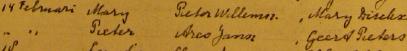 14 Februari Mary Pieter Willemsz , Mary Dirckx
" " Pieter Ares Jansz , Geert Pieters